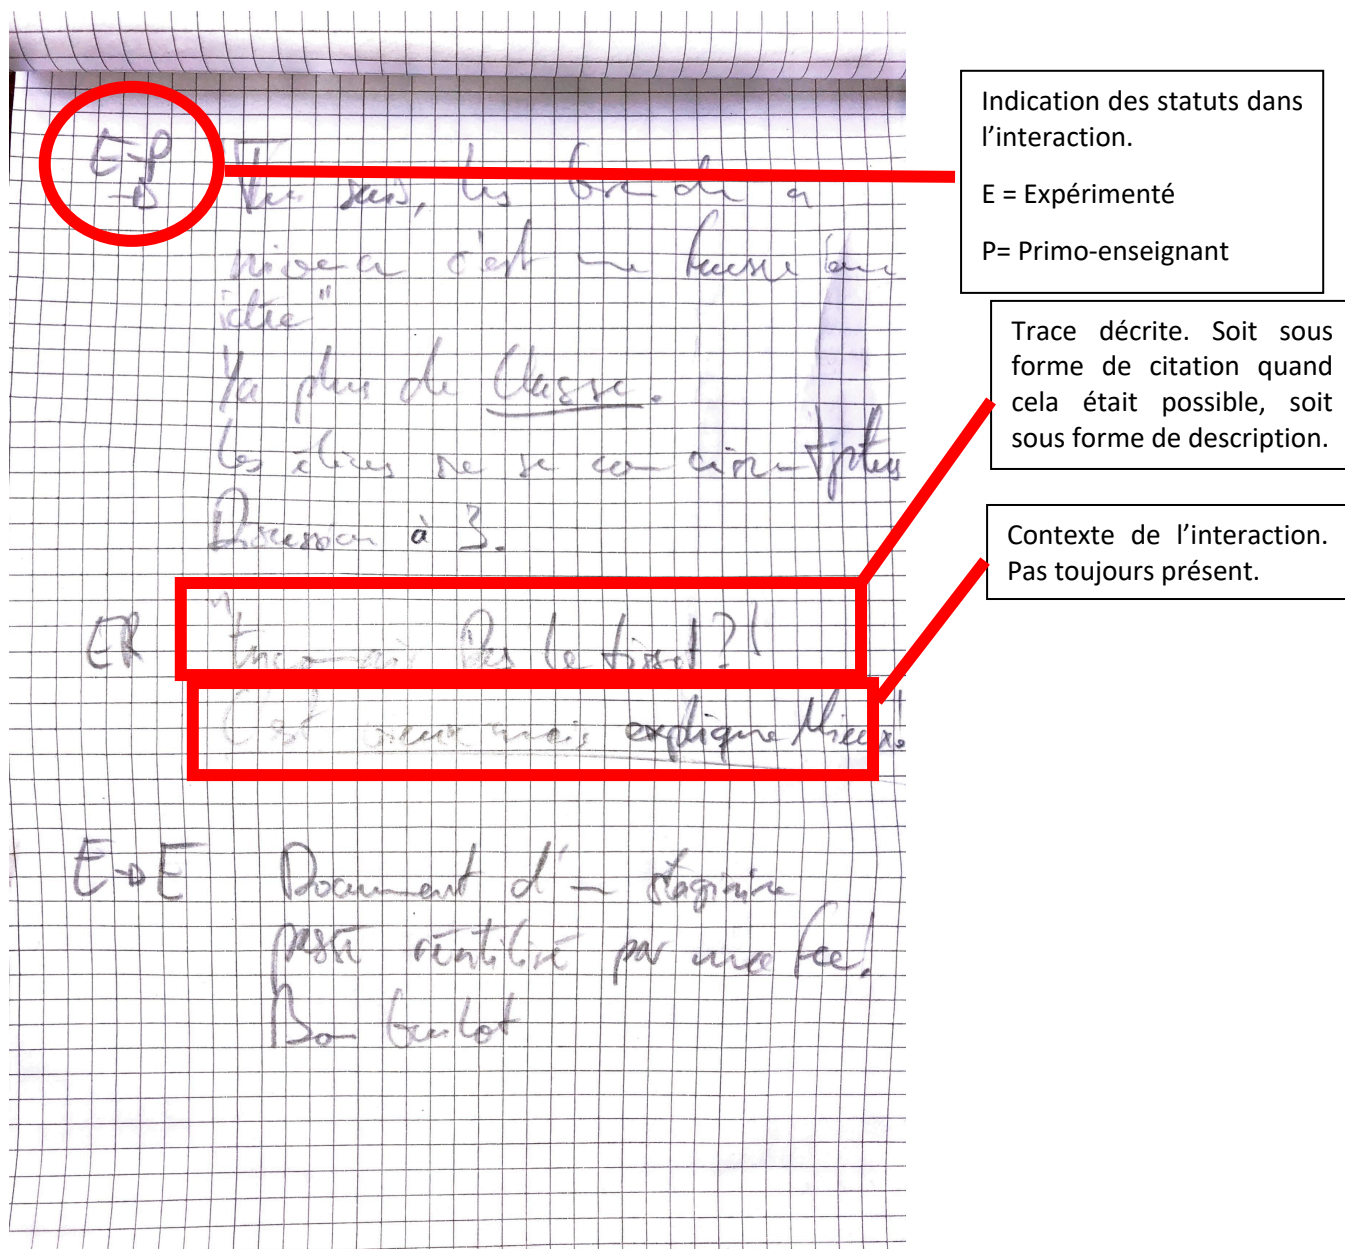 E-P
Tu sais, les groupes de
niveau c'est une fausse bonne
idée"
Ya plus de Classe.
les élèves ne se connaissent plus
Discussion à 3.
ER "Tu connais pas le tissot?!
C'est vieux mais explique Mieux!
E→E Document d'un stagiaire
passé réutilisé par une fac!
Bon boulot
Indication des statuts dans
l'interaction.
E = Expérimenté
P= Primo-enseignant
Trace décrite. Soit sous
forme de citation quand
cela était possible, soit
sous forme de description.
Contexte de l'interaction.
Pas toujours présent.